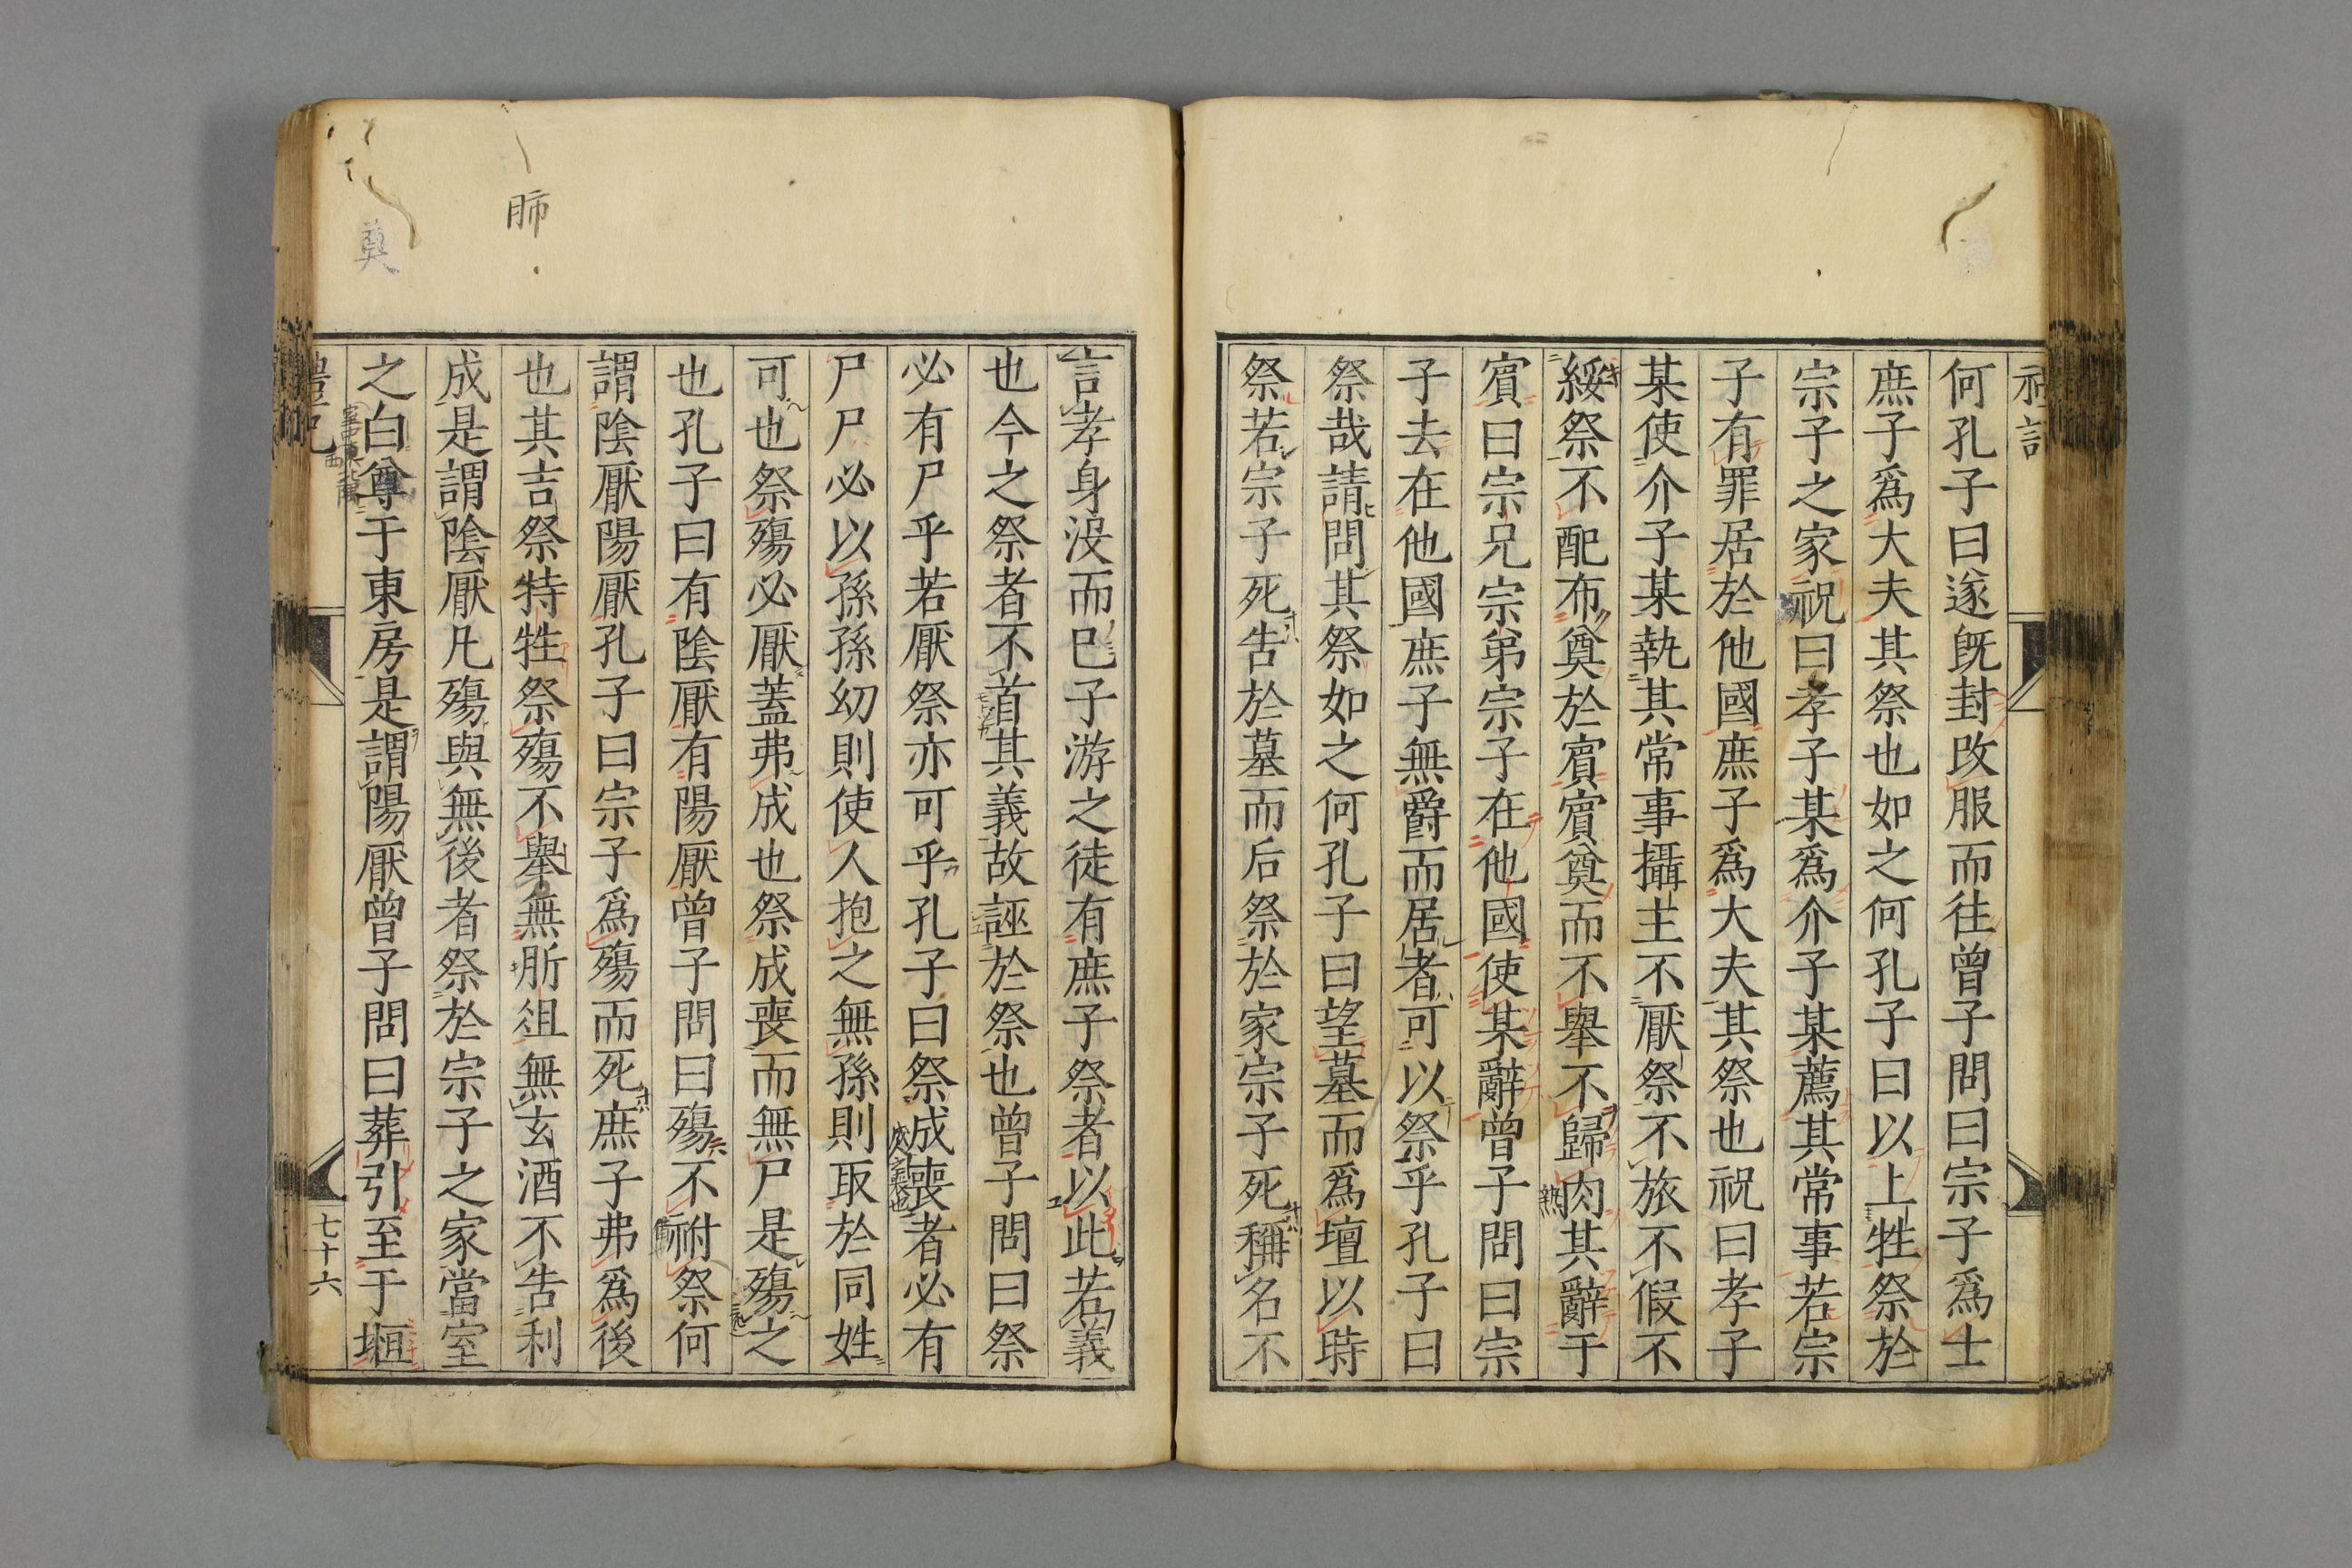 何孔子曰遂既封改服而往曾子問曰宗子爲士
庶子爲大夫其祭也如之何孔子曰以上牲祭於
宗子之家祝曰孝子某爲介子某薦其常事若宗
子有罪居於他國庶子爲大夫其祭也祝曰孝子
某使介子某執其常事攝主不厭祭不旅不假不
綏祭不配布奠於賓賓奠而不舉不歸肉其辭于
賓曰宗兄宗弟宗子在他國使某辭曾子問曰宗
子去在他國庶子無爵而居者可以祭乎孔子曰
祭哉請問其祭如之何孔子曰望墓而爲壇以時
祭若宗子死告於墓而后祭於家宗子死稱名不
言孝身没而已子游之徒有庶子祭者以此若義
也今之祭者不首其義故誣於祭也曾子問曰祭
必有尸乎若厭祭亦可乎孔子曰祭成喪者必有
尸尸必以孫孫幼則使人抱之無孫則取於同姓
可也祭殤必厭蓋弗成也祭成喪而無尸是殤之
也孔子曰有陰厭有陽厭曾子問曰殤不祔祭何
謂陰厭陽厭孔子曰宗子爲殤而死庶子弗爲後
也其吉祭特牲祭殤不舉無肵俎無玄酒不告利
成是謂陰厭凡殤與無後者祭於宗子之家當室
之白尊于東房是謂陽厭曾子問曰葬引至于堩
七十六
肺
奠